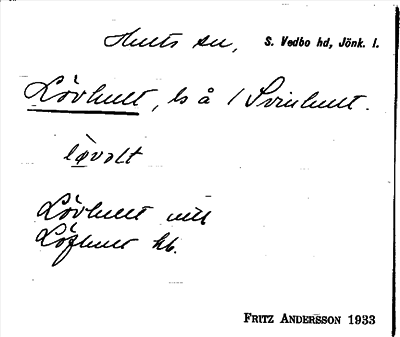 Hults sn, S. Vedbo hd, Jönk. l.
Lövhult, ls å / Svinhult.
lǻvolt
Lövhult
Löfhult kb.
FRITZ ANDERSSON 1933